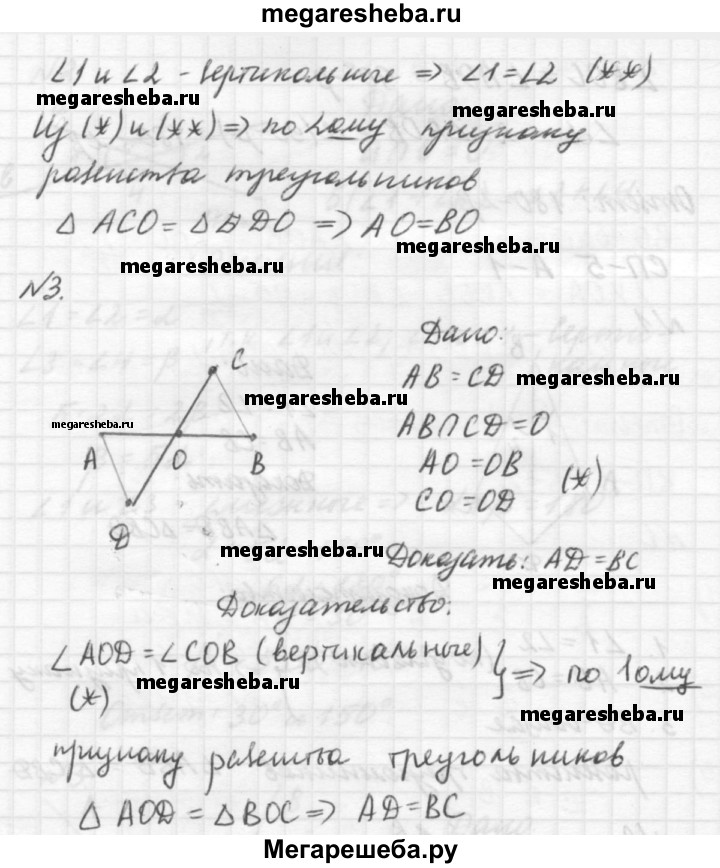 megaresheba.ru
∠1 и ∠2 - вертикальные => ∠1=∠2 (**)
megaresheba.ru megaresheba.ru
Из (*) и (**) => по 2ому признаку
равенства треугольников
Δ ACO = Δ BDO => AO=BO
megaresheba.ru megaresheba.ru
№3.
Дано:
AB = CD
megaresheba.ru
AB∩CD=O
AO=OB
CO=OD (*)
C
megaresheba.ru
megaresheba.ru
A O B
D
megaresheba.ru
Доказать: AD=BC
megaresheba.ru
Доказательство:
∠AOD=∠COB (вертикальные)
(*) } => по 1ому
megaresheba.ru
megaresheba.ru
признаку равенства треугольников
Δ AOD = Δ BOC => AD=BC
Мегарешеба.ру